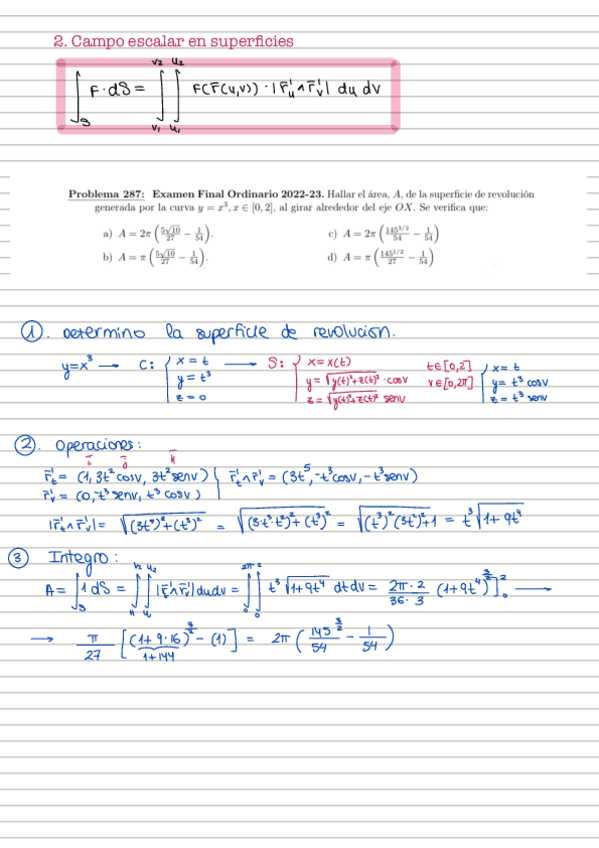 2. Campo escalar en superficies
∫_S F·dS = ∫_{v1}^{v2} ∫_{u1}^{u2} F(r̄(u,v)) · |r̄'u ∧ r̄'v| du dv
Problema 287: Examen Final Ordinario 2022-23. Hallar el área, A, de la superficie de revolución
generada por la curva y = x³, x ∈ [0, 2], al girar alrededor del eje OX. Se verifica que:
a) A = 2π (5√10/27 − 1/54). c) A = 2π (145^{3/2}/54 − 1/54)
b) A = π (5√10/27 − 1/54). d) A = π (145^{3/2}/27 − 1/54)
1. Determino la superficie de revolucion.
y=x³ → C: { x = t → S: { x = x(t) t∈[0,2] { x = t
y = t³ y = √(y(t)²+z(t)²) · cosv v∈[0,2π] y = t³ cosv
z = 0 z = √(y(t)²+z(t)²) senv z = t³ senv
2. Operaciones:
ī j̄ k̄
r̄'t = (1, 3t² cosv, 3t² senv) } r̄'t ∧ r̄'v = (3t⁵, -t³cosv, -t³senv)
r̄'v = (0, -t³ senv, t³ cosv)
|r̄'t ∧ r̄'v| = √((3t⁵)²+(t³)²) = √((3t³t²)²+(t³)²) = √((t³)²(3t²)²+1) = t³√(1+9t⁴)
3 Integro:
A = ∫_S 1 dS = ∫_{v1}^{v2} ∫_{u1}^{u2} |r̄'u ∧ r̄'v| du dv = ∫_0^{2π} ∫_0^2 t³ √(1+9t⁴) dt dv = 2π·2/36·3 (1+9t⁴)^{3/2}]_0^2 →
→ π/27 [(1+9·16)^{3/2} - (1)] = 2π (145^{3/2}/54 - 1/54)
1+144